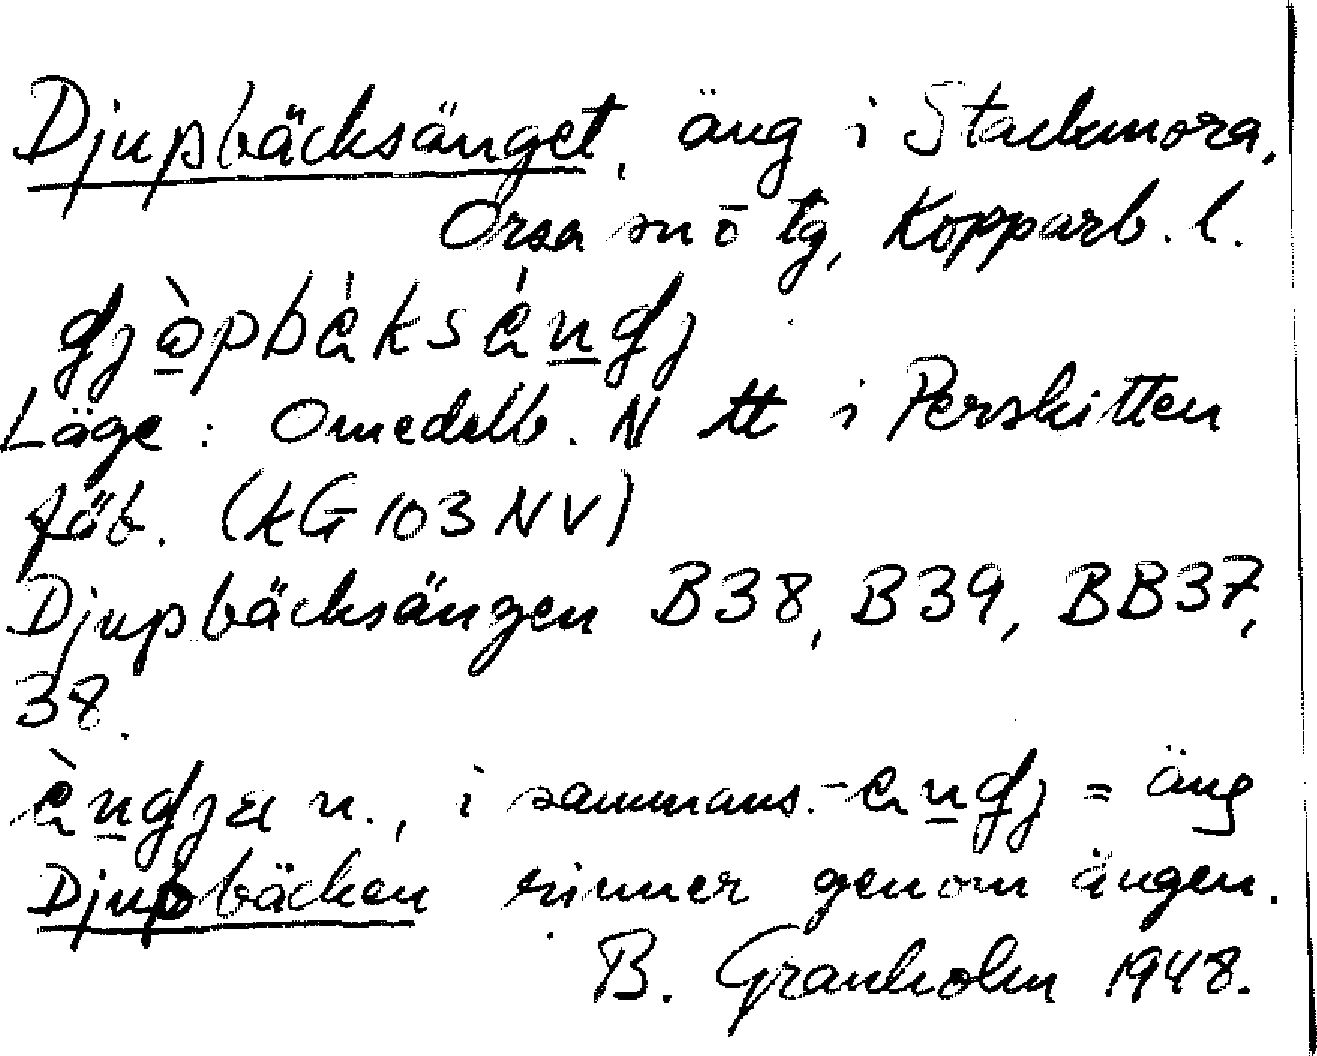 Djupbäcksänget, äng i Stackmora,
Orsa sn o tg, Kopparb. l.
Läge: Omedelb. N tt i Perskitten
fäb. (kG 103 NV)
Djupbäcksängen B38, B39, BB37,
38.
n., i sammans. = äng
Djupbäcken rinner genom ängen.
B. Granholm 1948.